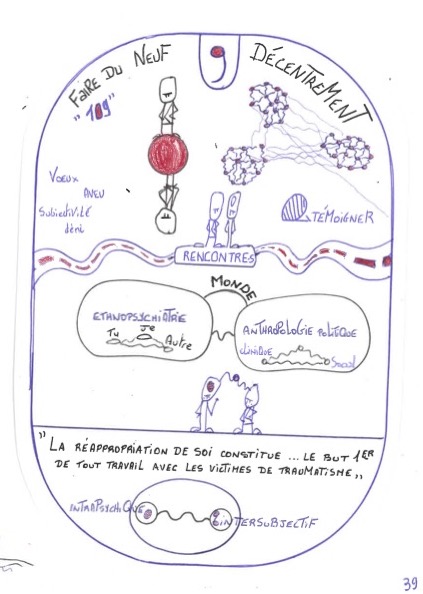 FAIRE DU NEUF
"1@9"
DÉCENTREMENT
VOEUX
AVEU
SUBJECTIVITÉ
déni
TÉMOIGNER
RENCONTRES
MONDE
ETHNOPSYCHIATRIE
Tu Je Autre
ANTHROPOLOGIE POLITIQUE
CLINIQUE
Social
"LA RÉAPPROPRIATION DE SOI CONSTITUE ... LE BUT 1ER
DE TOUT TRAVAIL AVEC LES VICTIMES DE TRAUMATISME"
INTRAPSYCHIQUE
INTERSUBJECTIF
39